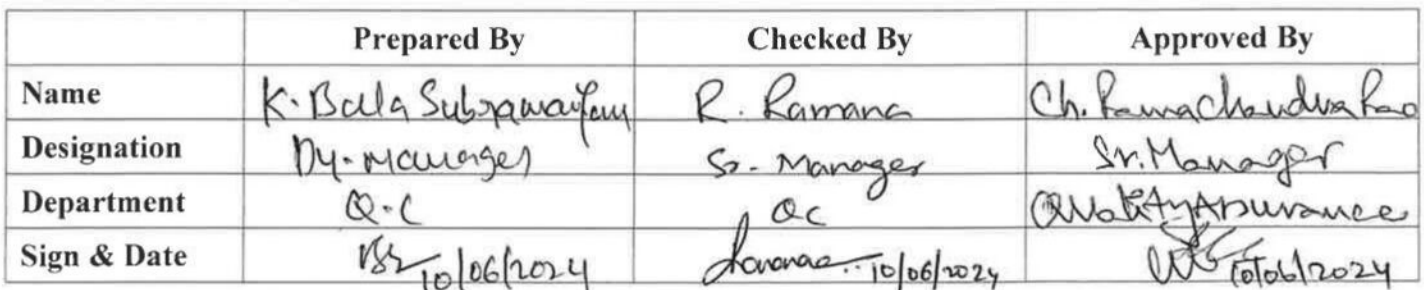 Prepared By Checked By Approved By
Name K. Bala Subramanyam R. Ramana Ch. Rama Chandra Rao
Designation Dy. Manager Sr. Manager Sr. Manager
Department Q.C QC Quality Assurance
Sign & Date 10/06/2024 10/06/2024 10/06/2024